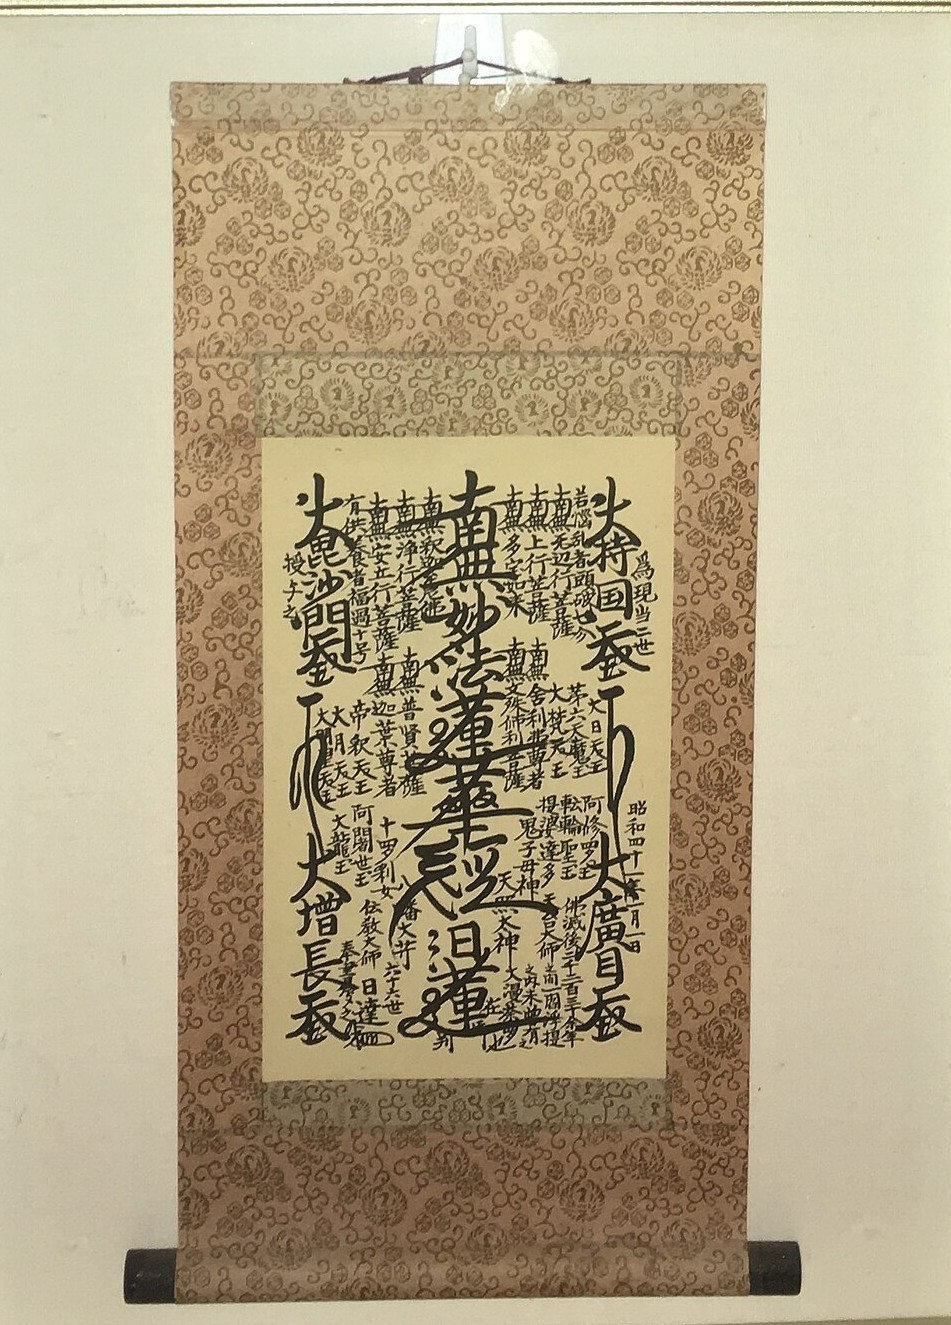 為現当二世
昭和四十一年一月一日
大持国天王
大廣目天王
若悩乱者頭破七分
大日天王
阿修羅王
佛滅後二千二百三十余年
南無无辺行菩薩
第六天魔王
転輪聖王
之間一閻浮提
南無上行菩薩
南無舎利弗尊者
大梵天王
提婆達多
天台大師
之内未曽有之
南無多宝如来
南無文殊師利菩薩
鬼子母神
天照太神
大漫荼羅也
南無妙法蓮華経日蓮
在
判
南無釈迦牟尼仏
南無普賢菩薩
十羅刹女
八幡大菩薩
六十六世
南無浄行菩薩
南無迦葉尊者
阿闍世王
伝教大師
日達
南無安立行菩薩
帝釈天王
大月天王
大明星天王
大龍王
奉書写之
有供養者福過十号
大毘沙門天王
大増長天王
授与之